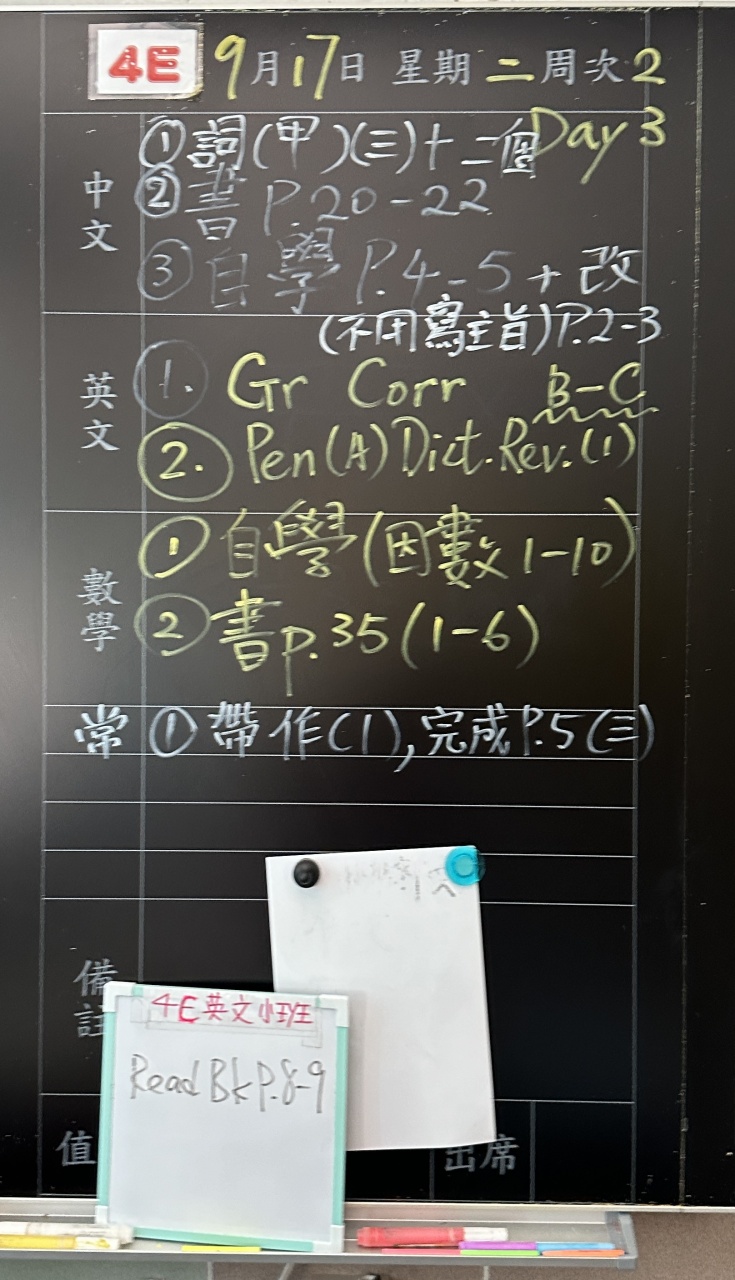 4E 9月17日 星期二 周次2
Day 3
中文
①詞(甲)(三)+二個
②書 P.20-22
③自學 P.4-5+改
(不用寫主旨)P.2-3
英文
1. Gr Corr B-C
2. Pen(A) Dict.Rev.(1)
數學
①自學(因數1-10)
②書p.35(1-6)
常 ①帶作(1),完成P.5(三)
備註
4E英文小班
Read Bk P.8-9
值
出席